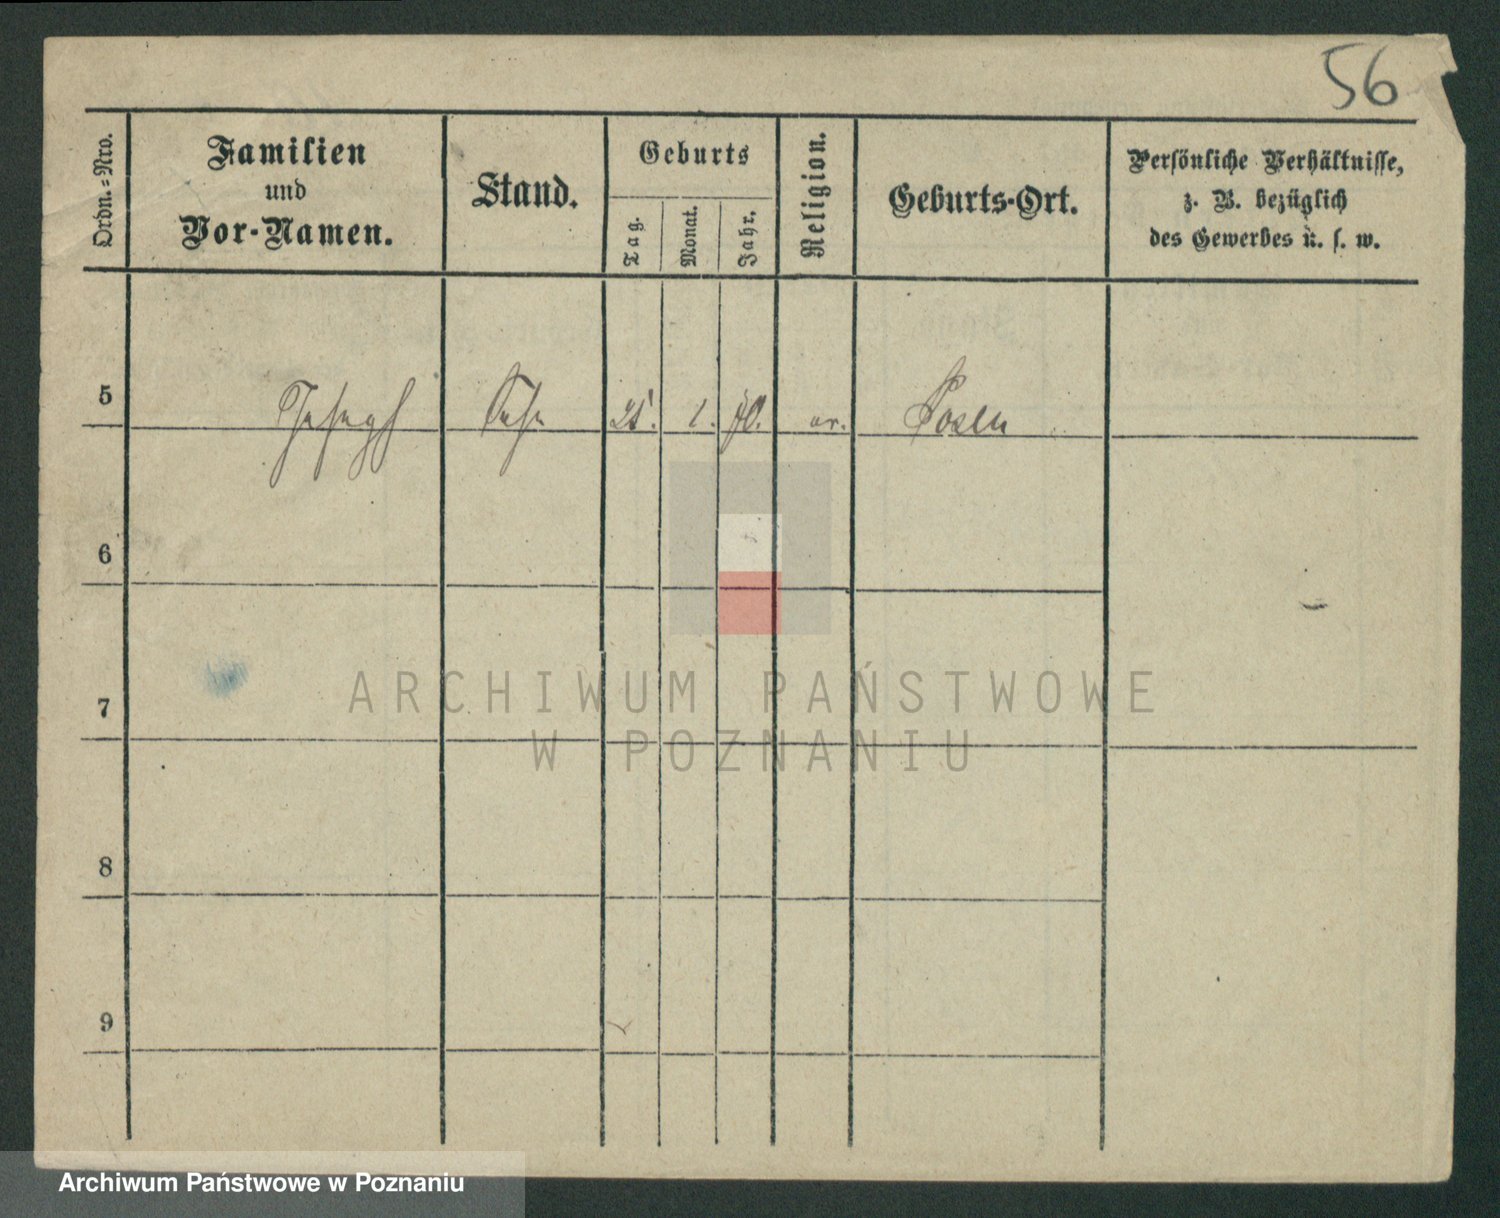 56
Ordn.-Nro.
Familien
und
Vor-Namen.
Stand.
Geburts
Tag.
Monat.
Jahr.
Religion.
Geburts-Ort.
Persönliche Verhältnisse,
z. B. bezüglich
des Gewerbes u. s. w.
5 1. 70. Posen
6
7
8
9
ARCHIWUM PAŃSTWOWE
W POZNANIU
Archiwum Państwowe w Poznaniu